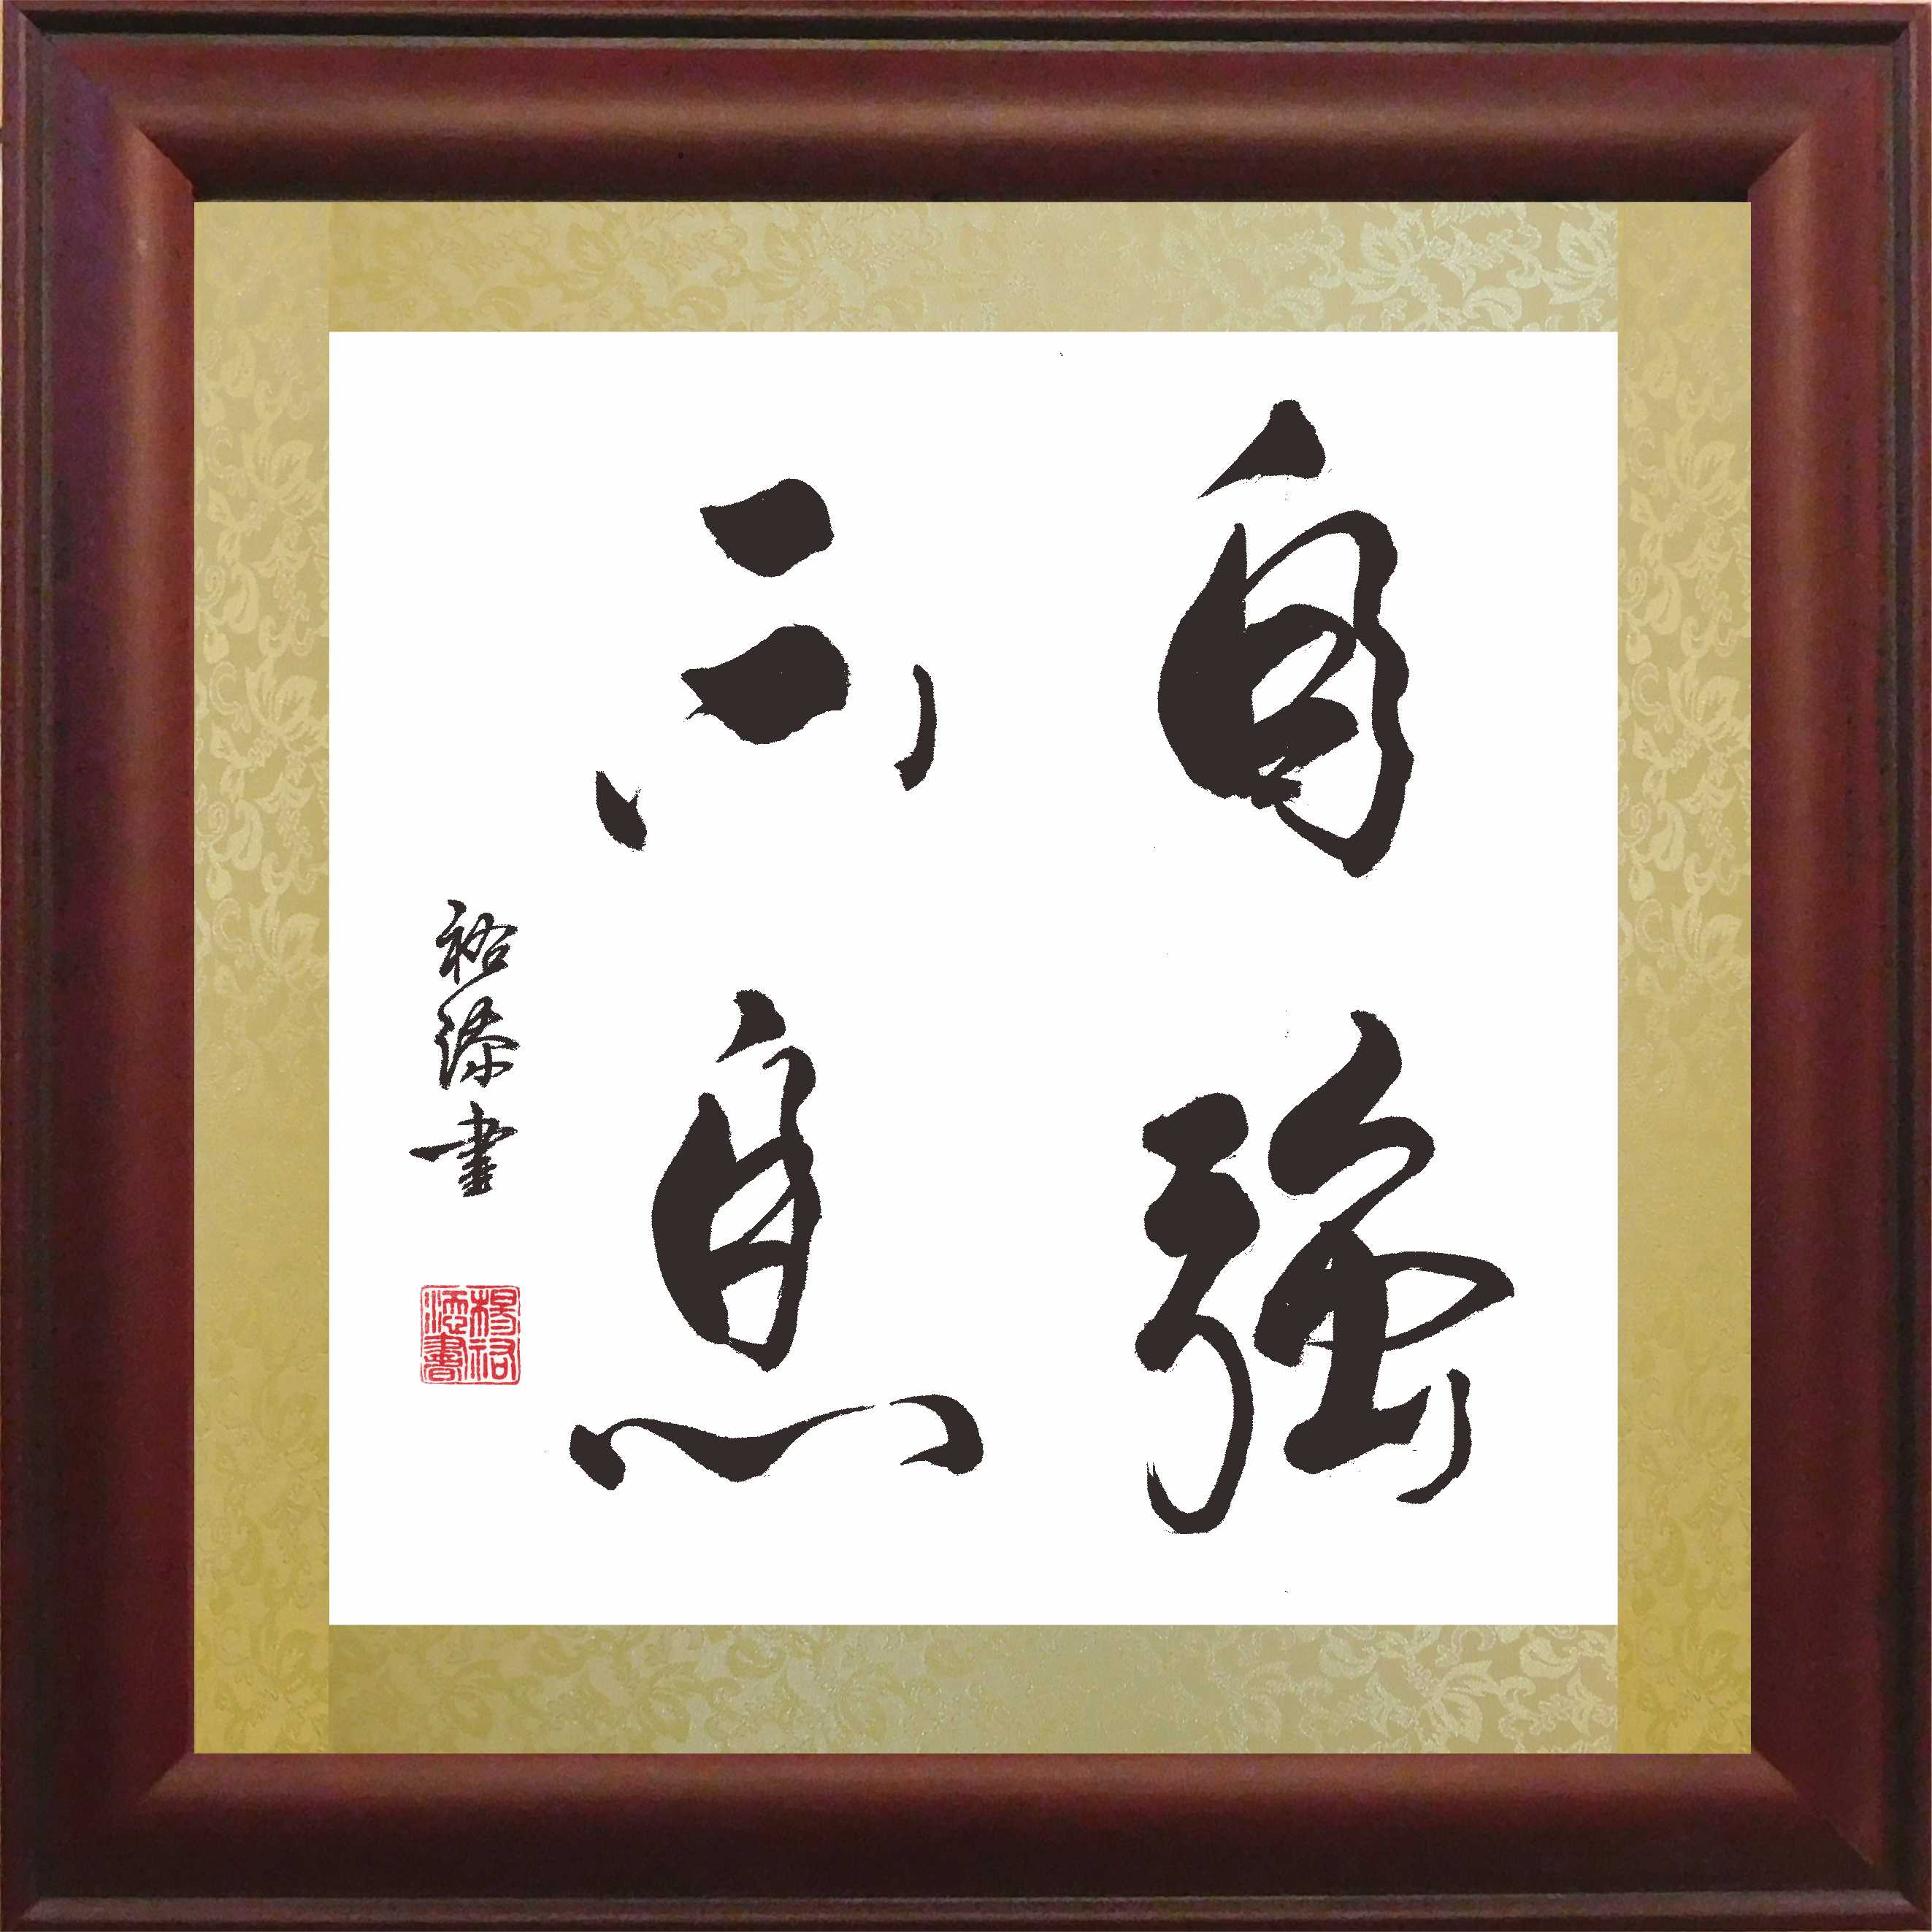 自強
不息
裕添書
楊裕
添書